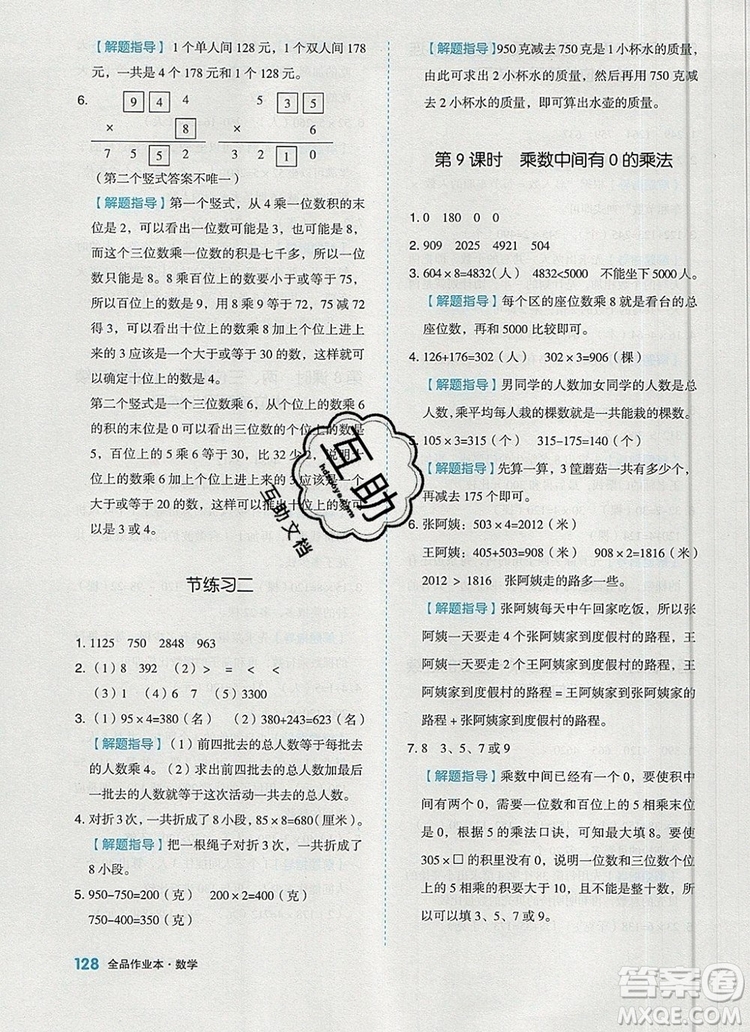 【解题指导】1 个单人间 128 元，1 个双人间 178
元，一共是 4 个 178 元和 1 个 128 元。
6. 9 4 4    5 3 5
× 8    × 6
7 5 5 2    3 2 1 0
（第二个竖式答案不唯一）
【解题指导】第一个竖式，从 4 乘一位数积的末
位是 2，可以看出一位数可能是 3，可能是 8，
而这个三位数乘一位数的积是七千多，所以一
位数应该是 8，三位数的百位上的数是 9。
8 乘百位上的数大于或等于 70，小于或等于 75，
8 乘百位上的数，用 8 乘 9 等于 72，75 减 72
等于 3，可以看出十位上的数乘 8 加个位上进
来的 3 应该是一个大于或等于 30 的数，可以
确定十位上的数乘 8 加个位上进上来的 3 应
该是一个大于或等于 30，小于 40 的数，所以可
以确定十位上的数是 4。
第二个竖式是一个三位数乘 6，从个位上的数乘 6
的积的末位是 0，可以看出个位上的数是 0 或 5，
百位上的 5 乘 6 等于 30，比 32 少 2，所以十
位上的数乘 6 加上个位上进上来的数应该是一
个大于或等于 20 的数，这样可以推出十位上的
数是 3或4。
节练习二
1. 1125 750 2848 963
2.（1）8 392 （2）> = < <
（3）1 （4）7 （5）3300
3.（1）95×4=380（名） （2）380+243=623（名）
【解题指导】（1）前四批去的总人数等于每批去
的人数乘批数。（2）求出前四批去的总人数加最后
一批去的人数就等于这次活动一共去的总人数。
4. 对折 3 次，一共折成了 8 小段，85×8=680（厘米）。
【解题指导】把一根绳子对折 3 次，一共折成了
8 小段。
5. 950-750=200（克） 200×2=400（克）
750-400=350（克）
128 全品作业本·数学
【解题指导】950 克减去 750 克是 1 小杯水的质量，
由此可求出 2 小杯水的质量，然后再用 750 克减
去 2 小杯水的质量，即可算出水壶的质量。
第 9 课时 乘数中间有 0 的乘法
1. 0 180 0 0
2. 909 2025 4921 504
3. 604×8=4832（人） 4832<5000 不能坐下 5000 人。
【解题指导】每个区的座位数乘 8 就是看台的总
座位数，再与 5000 比较即可。
4. 126+176=302（人） 302×3=906（棵）
【解题指导】男同学的人数加女同学的人数是总
人数，乘平均每人栽的棵数就是一共栽的棵数。
5. 105×3=315（个） 315-175=140（个）
【解题指导】先算一算，3 筐蘑菇一共有多少个，
再减去吃了的个数就是还剩的个数。
6. 张阿姨：503×4=2012（米）
王阿姨：454×2=908（米） 908×2=1816（米）
2012 > 1816 张阿姨走的路多一些。
【解题指导】张阿姨中午回家吃饭，所以，张
阿姨一天要走 4 个张阿姨家到度假村的路程，王
阿姨一天要走 2 个王阿姨家到度假村的路程，王
阿姨家到度假村的路程 = 王阿姨家到张阿姨家的
路程 + 张阿姨家到度假村的路程。
7. 8 3、5、7 或 9
【解题指导】乘数中间已经有一个 0，要使积的中
间有两个 0，那么个位和百位上的 5 乘完要是整
百数，根据 5 的乘法口诀，可以知道□里填 8。
305×□ 的积里没有 0，说明个位数与三位数个位上
5 相乘的积要大于 10，且不能是整十数，所以
可以填 3、5、7 或 9。
互助
hdzuoye.com
互助文档
答案圈
MXQE.COM